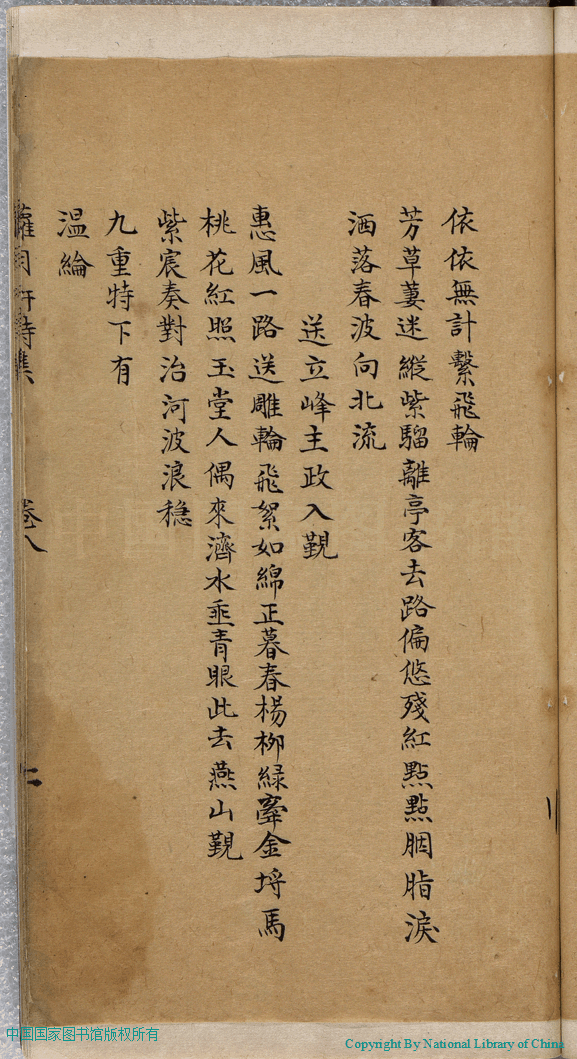 依依無計繫飛輪
芳草萋迷縱紫騮離亭客去路偏悠殘紅點點胭脂淚
洒落春波向北流
送立峰主政入覲
惠風一路送雕輪飛絮如綿正暮春楊柳緑牽金埒馬
桃花紅照玉堂人偶來濟水垂青眼此去燕山覲
紫宸奏對治河波浪穩
九重特下有
温綸
詩集
卷八
中国国家图书馆版权所有
Copyright By National Library of China